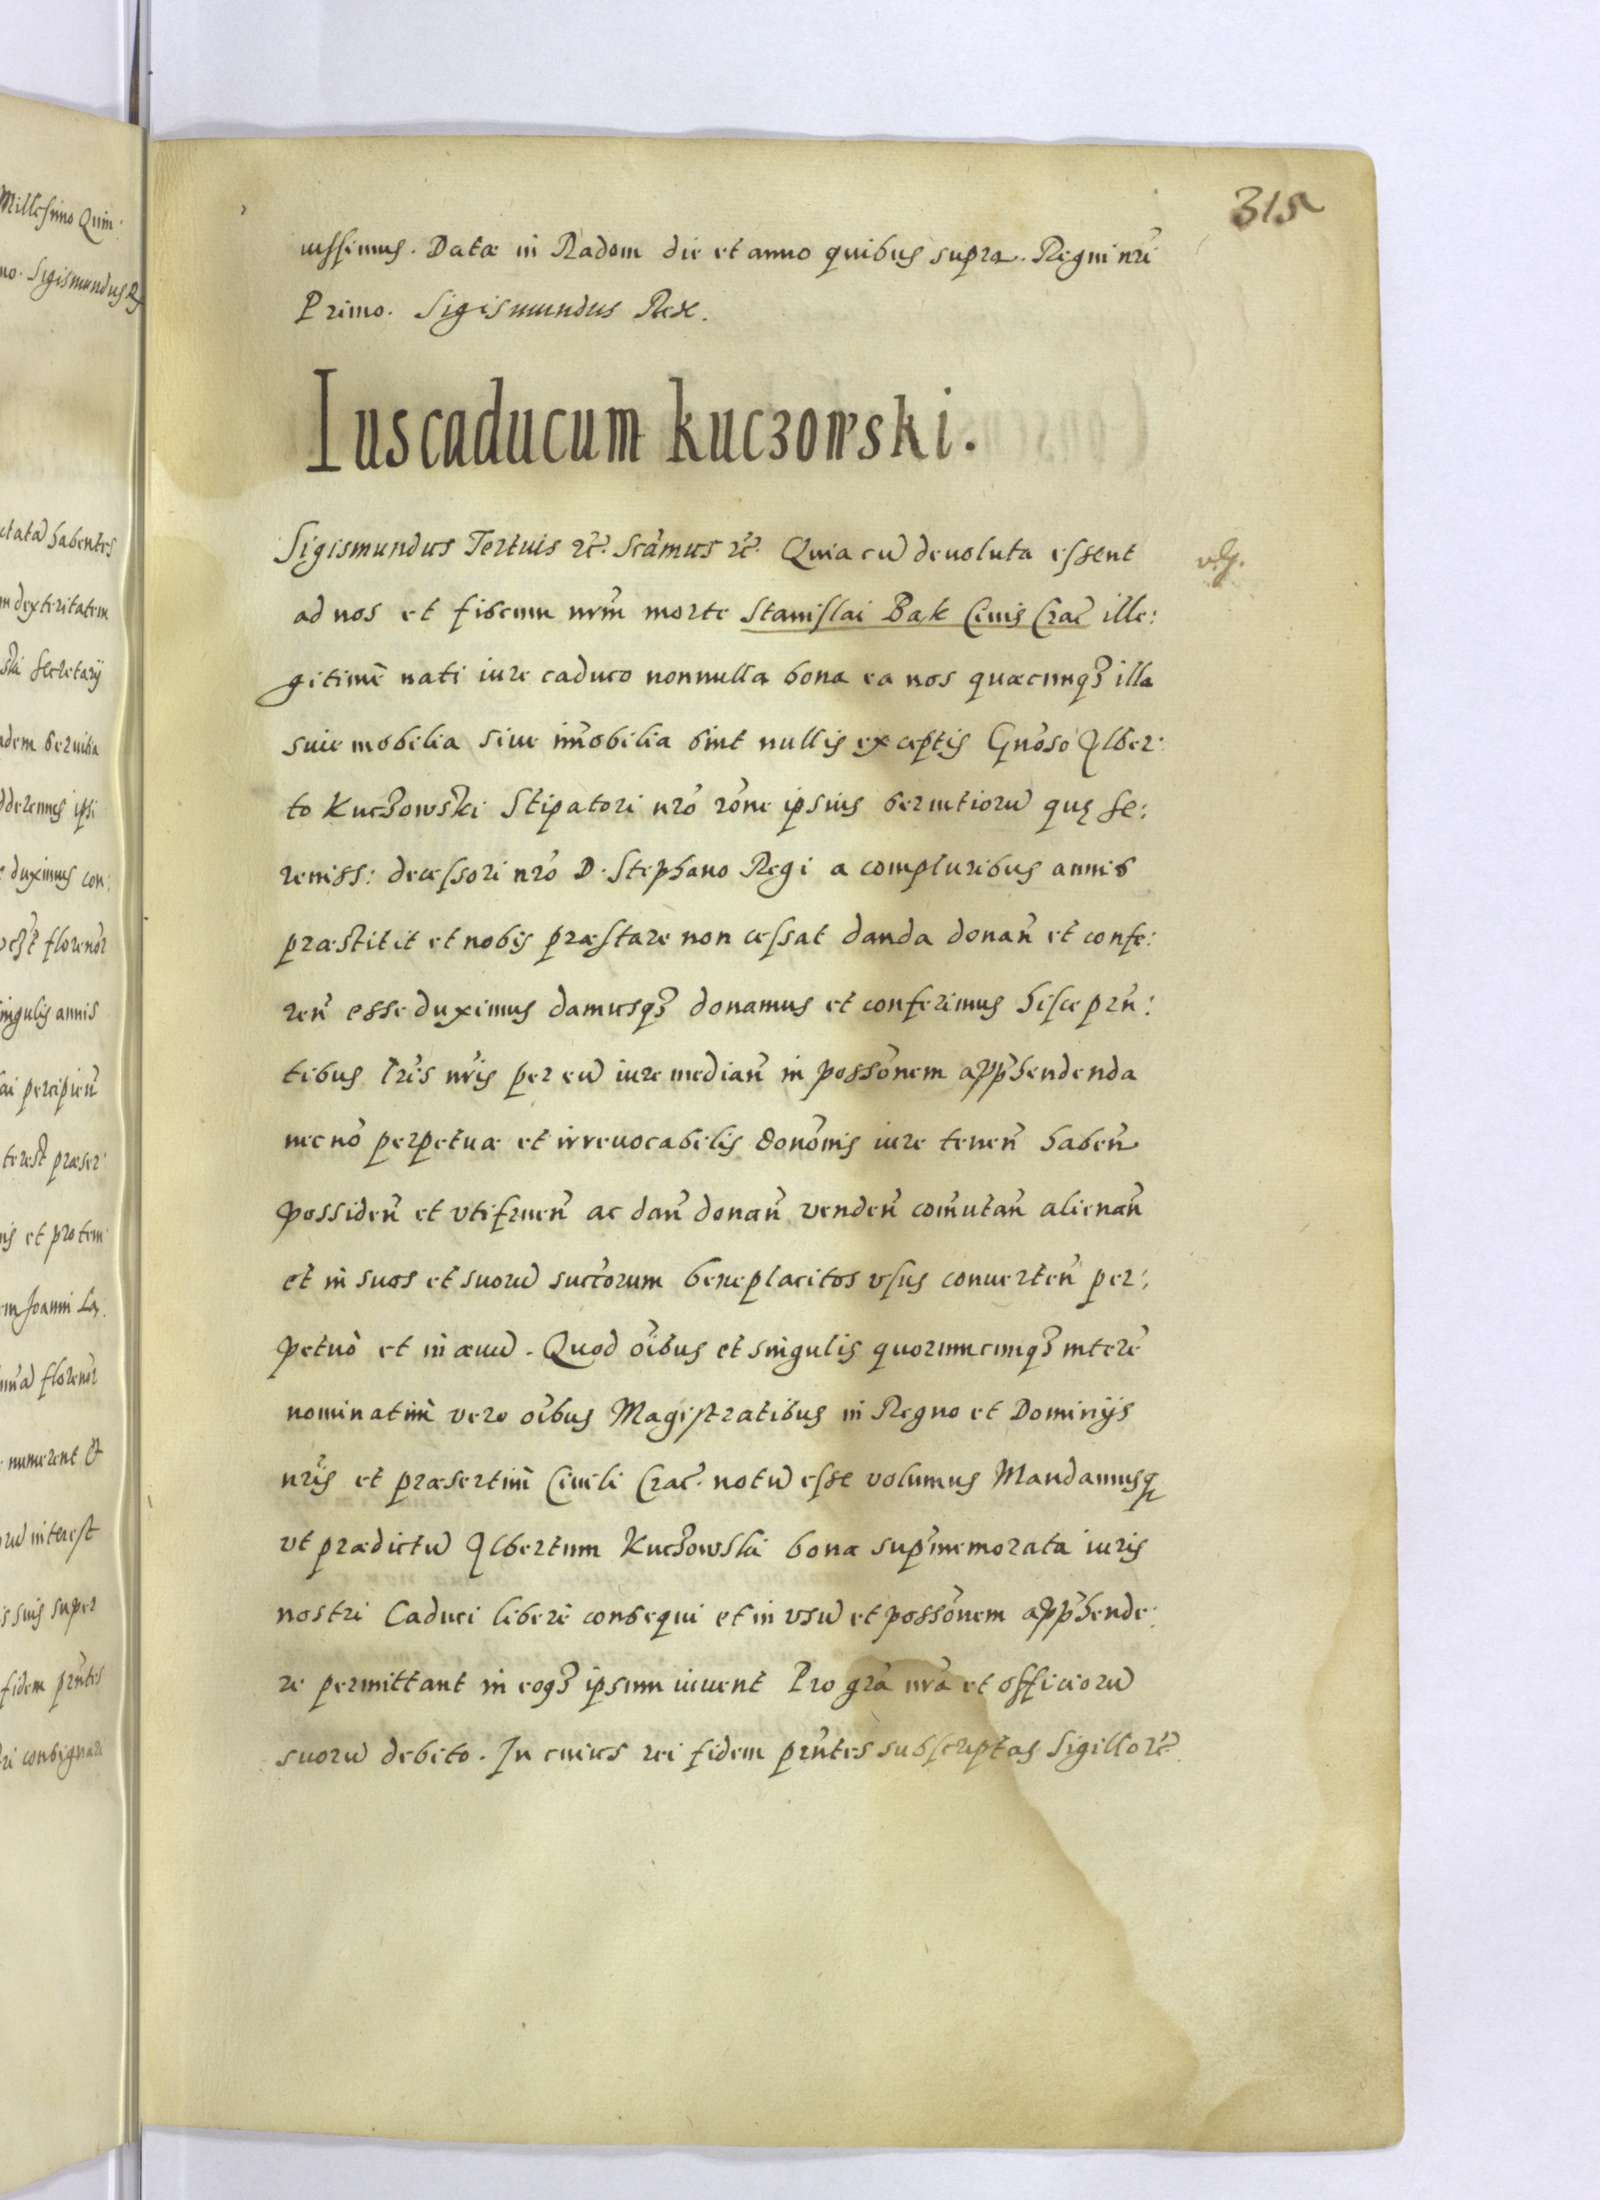 Millesimo Quin:
no. Sigismundus Rex
ctatã habentes
m dexteritatem
ski secretarij
adem servitia
dderemus ipsi
e duximus con:
florenor̃
singulis annis
percipien̄
terest præser:
et protem
em Joanni La:
florenor̃
numerent et
rũ interest
is suis super
fidem prñtes
ri consignari
315
iussimus. Datæ in Radom die et anno quibus supra. Regni nr̃i
Primo. Sigismundus Rex.
Ius caducum kuczowski.
Sigismundus Tertuis etc̃. Scãmus etc̃. Quia cũ devoluta essent
ad nos et fiscum nr̃m morte Stanislai Bak Civis Crac̃ ille:
gitimè nati iure caduco nonnulla bona ea nos quæcunqꝫ illa
suie mobilia sive im̃obilia sint nullis exceptis Gnõso Alber:
to Kuczowski Stipatori nr̃o rõne ipsius servitiorũ quę se:
reniss: decessori nr̃o D. Stephano Regi a compluribus annis
præstitit et nobis præstare non cessat danda donañ et confe:
reñ esse duximus damusqꝫ donamus et conferimus hisce prñ:
tibus l̃ris nr̃is per eũ iure mediañ in possõnem app̃hendenda
necnõ perpetuæ et irrevocabilis donõnis iure teneñ habeñ
possideñ et utifrueñ ac dañ donañ vendeñ com̃utañ alienañ
et in suos et suorũ succ̃orum beneplacitos usus converteñ per:
petuò et in ævũ. Quod õibus et singulis quorumcunqꝫ interẽ
nominatim̀ vero õibus Magistratibus in Regno et Dominijs
nr̃is et præsertim̀ Civili Crac̃. notũ esse volumus Mandamusqꝫ
ut prædictũ Albertum Kuczowski bona sup̃memorata iuris
nostri Caduci liberè consequi et in usũ et possõnem app̃hende:
re permittant in eoqꝫ ipsum iuvent Pro gr̃a nr̃a et officiorũ
suorũ debito. In cuius rei fidem prñtes subscriptas Sigillo etc̃.